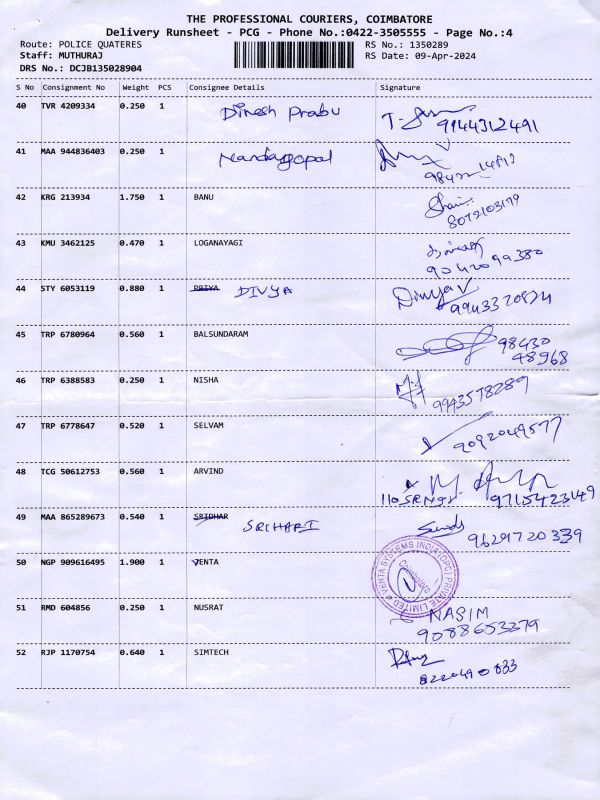 THE PROFESSIONAL COURIERS, COIMBATORE
Delivery Runsheet - PCG - Phone No.:0422-3505555 - Page No.:4
Route: POLICE QUATERES RS No.: 1350289
Staff: MUTHURAJ RS Date: 09-Apr-2024
DRS No.: DCJB135028904
S No Consignment No Weight PCS Consignee Details Signature
40 TVR 4209334 0.250 1 Dinesh Prabu
9144312491
41 MAA 944836403 0.250 1 Nandagopal
42 KRG 213934 1.750 1 BANU
8072103179
43 KMU 3462125 0.470 1 LOGANAYAGI
90420 99380
44 STY 6053119 0.880 1 PRIYA DIVYA Divya V
45 TRP 6780964 0.560 1 BALSUNDARAM 98430
48968
46 TRP 6388583 0.250 1 NISHA
9943578289
47 TRP 6778647 0.520 1 SELVAM
9092049577
48 TCG 50612753 0.560 1 ARVIND
9715423149
49 MAA 865289673 0.540 1 SRIDHAR SRIHARI
9629720339
50 NGP 909616495 1.900 1 VENTA
VENTA SYSTEMS INDIA (OPC) PRIVATE LIMITED
Coimbatore
51 RMD 604856 0.250 1 NUSRAT NASIM
9088653379
52 RJP 1170754 0.640 1 SIMTECH